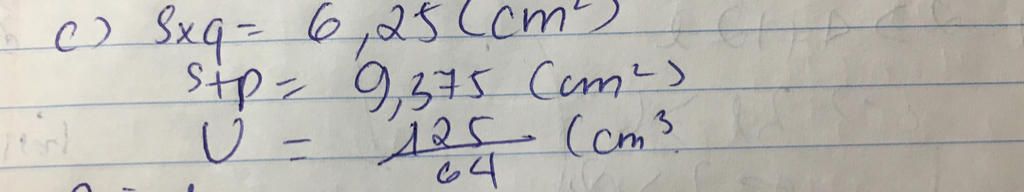 c) Sxq = 6,25 (cm²)
Stp = 9,375 (cm²)
V = 125/64 (cm³